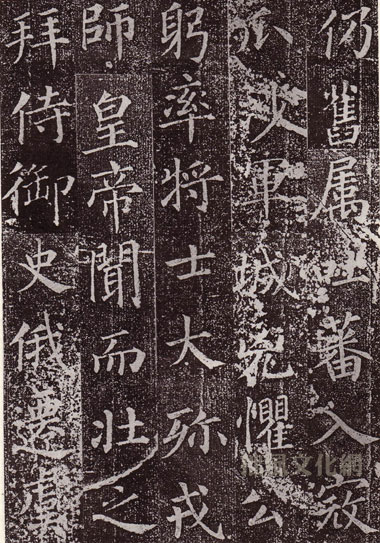 仍舊属吐蕃入寇
瓜沙軍城兇懼公
躬率將士大殄戎
師皇帝聞而壯之
拜侍御史俄遷虞
文化網